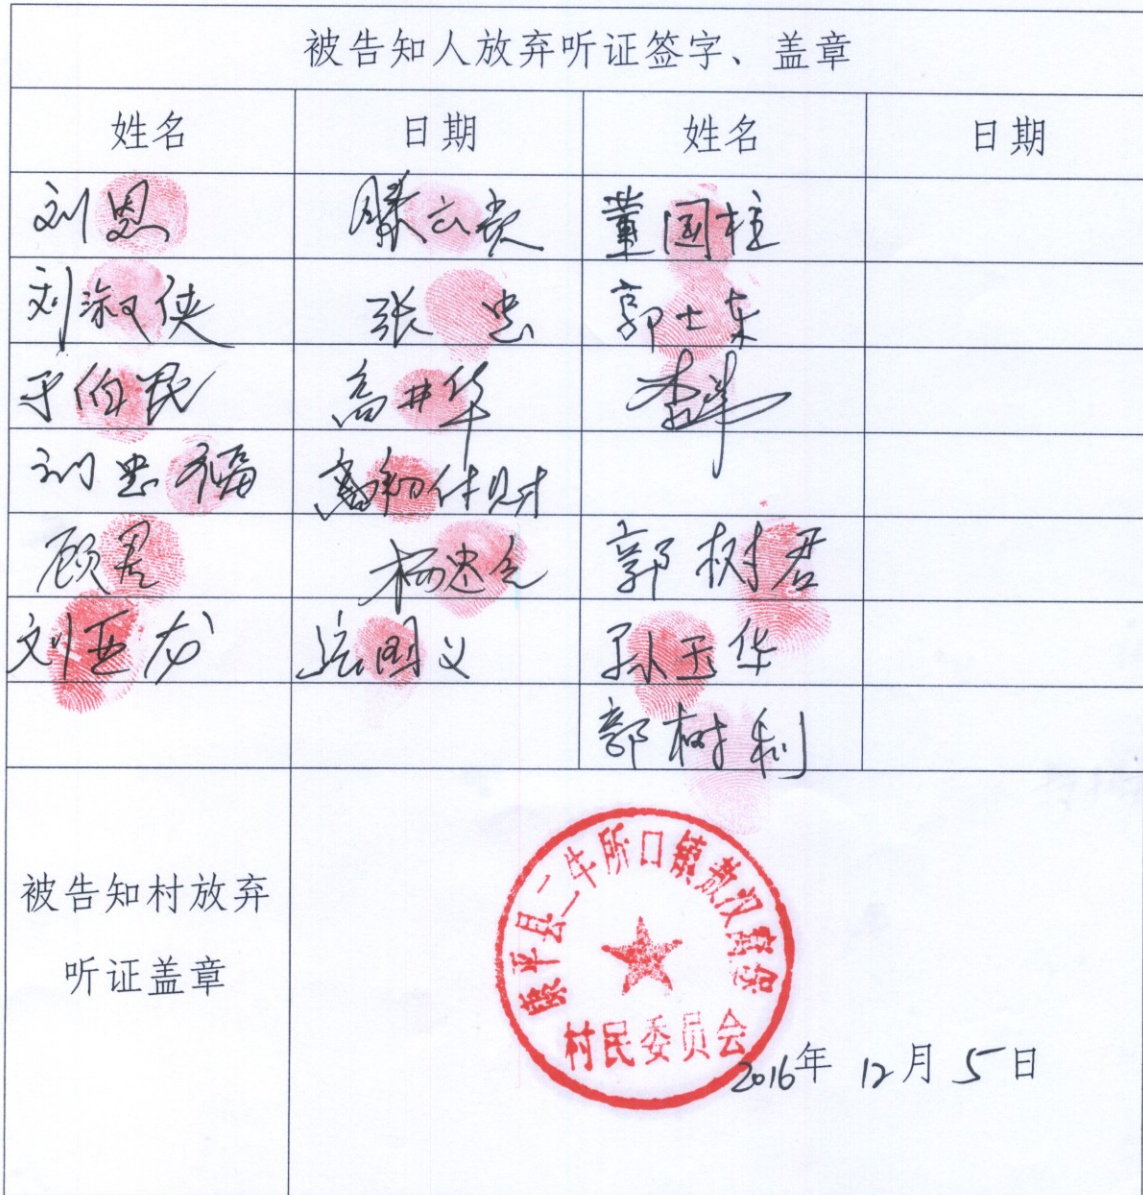 被告知人放弃听证签字、盖章
姓名 日期 姓名 日期
刘恩 滕云贵 董国柱
刘淑侠 张忠 郭士东
于伯民 高井华 李军
刘忠福
顾君 杨忠仓 郭树君
刘亚龙 国义 孙玉华
郭树利
被告知村放弃
听证盖章
康平县二牛所口镇敖汉窝堡
村民委员会
2016年 12月 5日